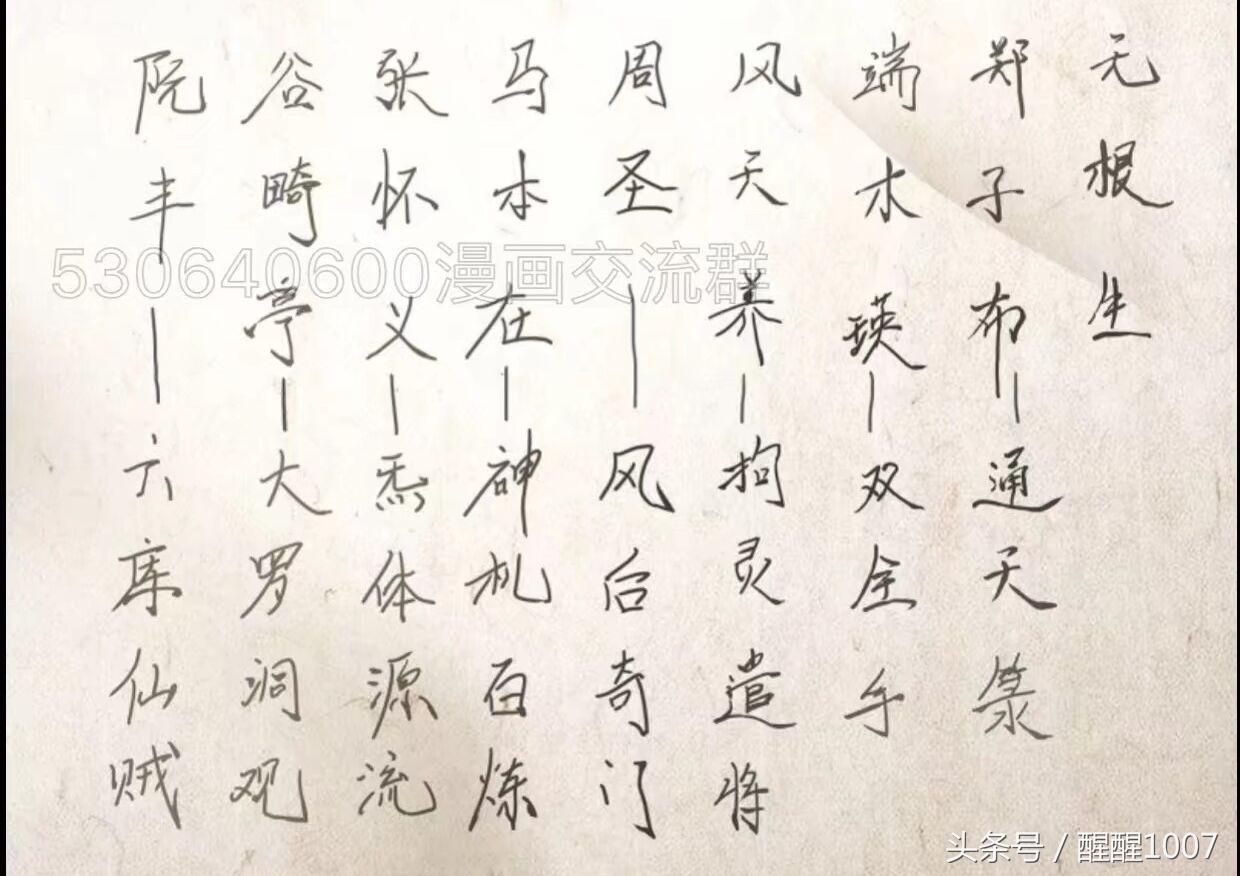 无根生
郑子布—通天箓
端木瑛—双全手
风天养—拘灵遣将
周圣—风后奇门
马本在—神机百炼
张怀义—炁体源流
谷畸亭—大罗洞观
阮丰—六库仙贼
530640600漫画交流群
头条号 / 醒醒1007